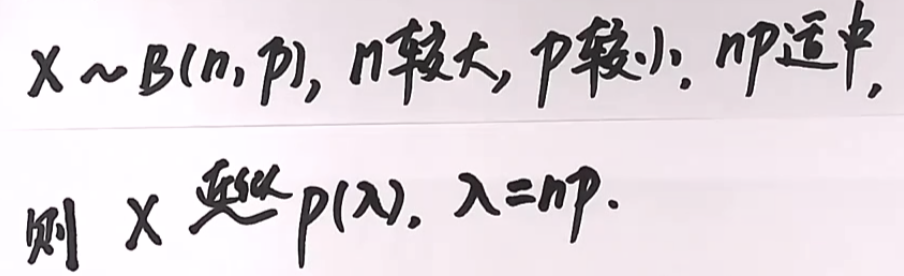 X ~ B(n, p), n较大, p较小, np适中,
则 X 近似~ P(λ), λ=np.